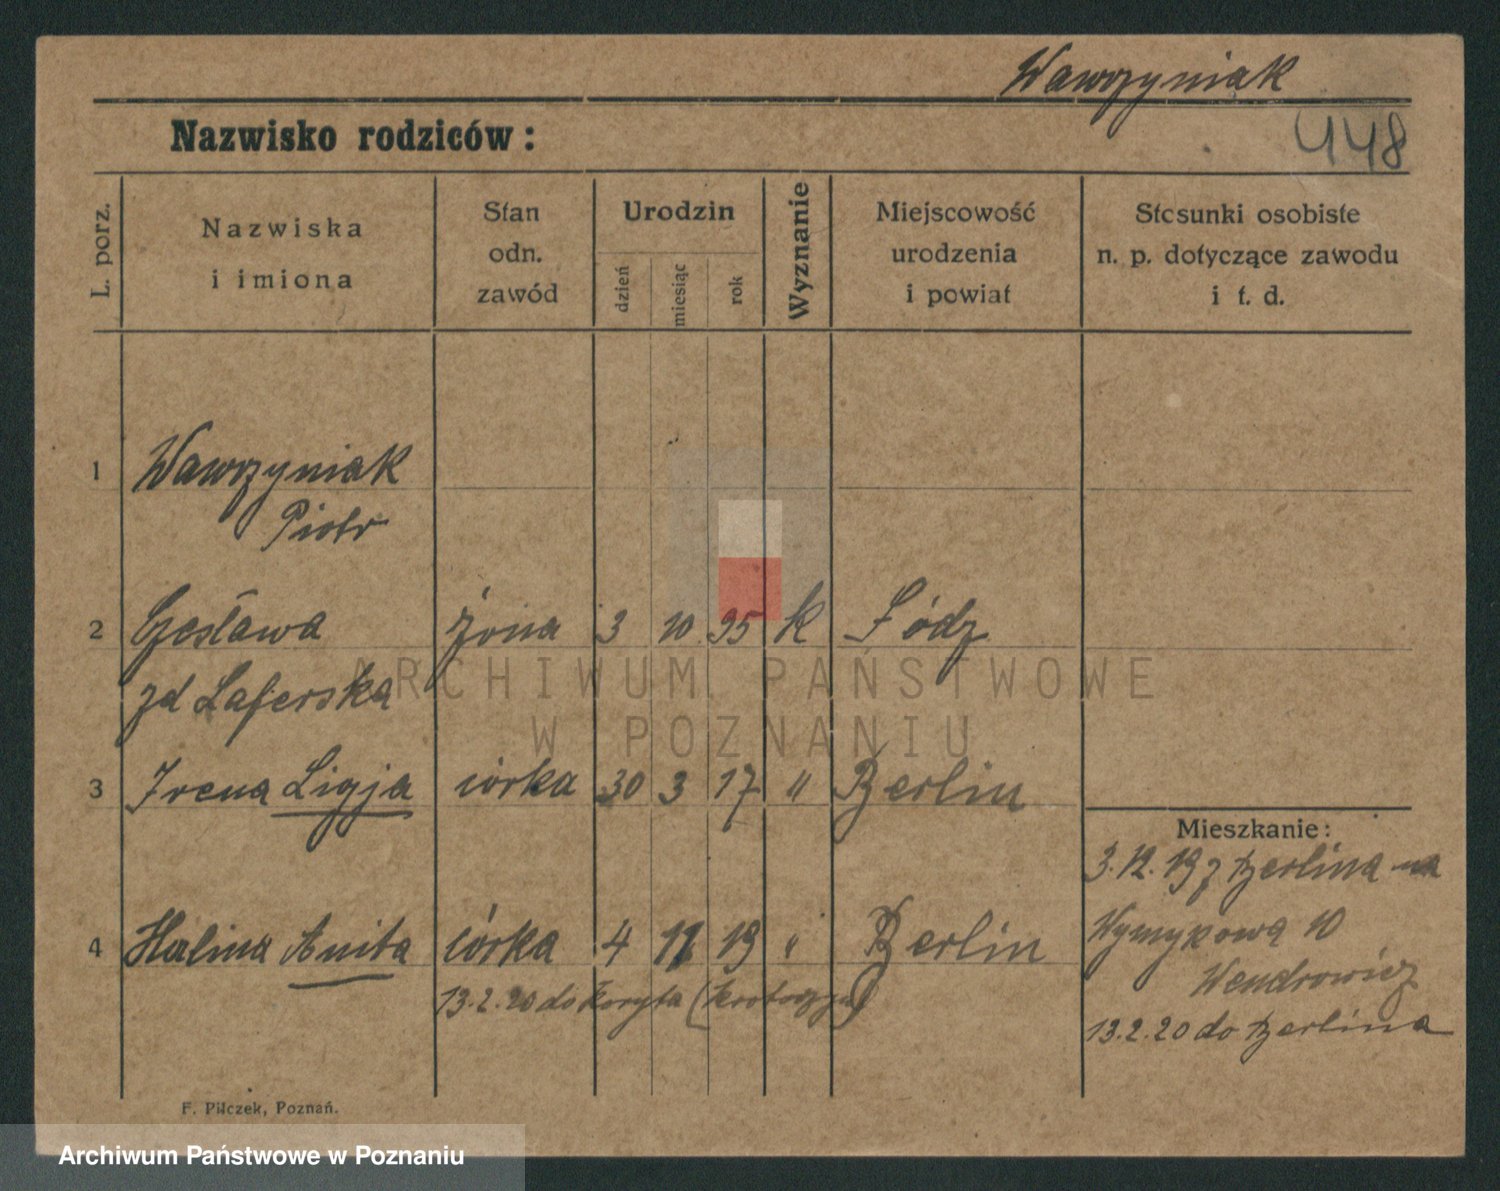 Wawrzyniak
448
Nazwisko rodziców:
L. porz.
Nazwiska
i imiona
Stan
odn.
zawód
Urodzin
dzień
miesiąc
rok
Wyznanie
Miejscowość
urodzenia
i powiat
Stosunki osobiste
n. p. dotyczące zawodu
i t. d.
1 Wawrzyniak
Piotr
2 Czesława żona 3 10 95 k Łódz
zd Laferska
ARCHIWUM PAŃSTWOWE
W POZNANIU
3 Irena Ligja córka 30 3 17 " Berlin
Mieszkanie:
3.12.19 z Berlina na
4 Halina Anita córka 4 11 19 " Berlin
10
Wendrowicz
13.2.20 do Koryta (Krotoszyn)
13.2.20 do Berlina
F. Pilczek, Poznań.
Archiwum Państwowe w Poznaniu